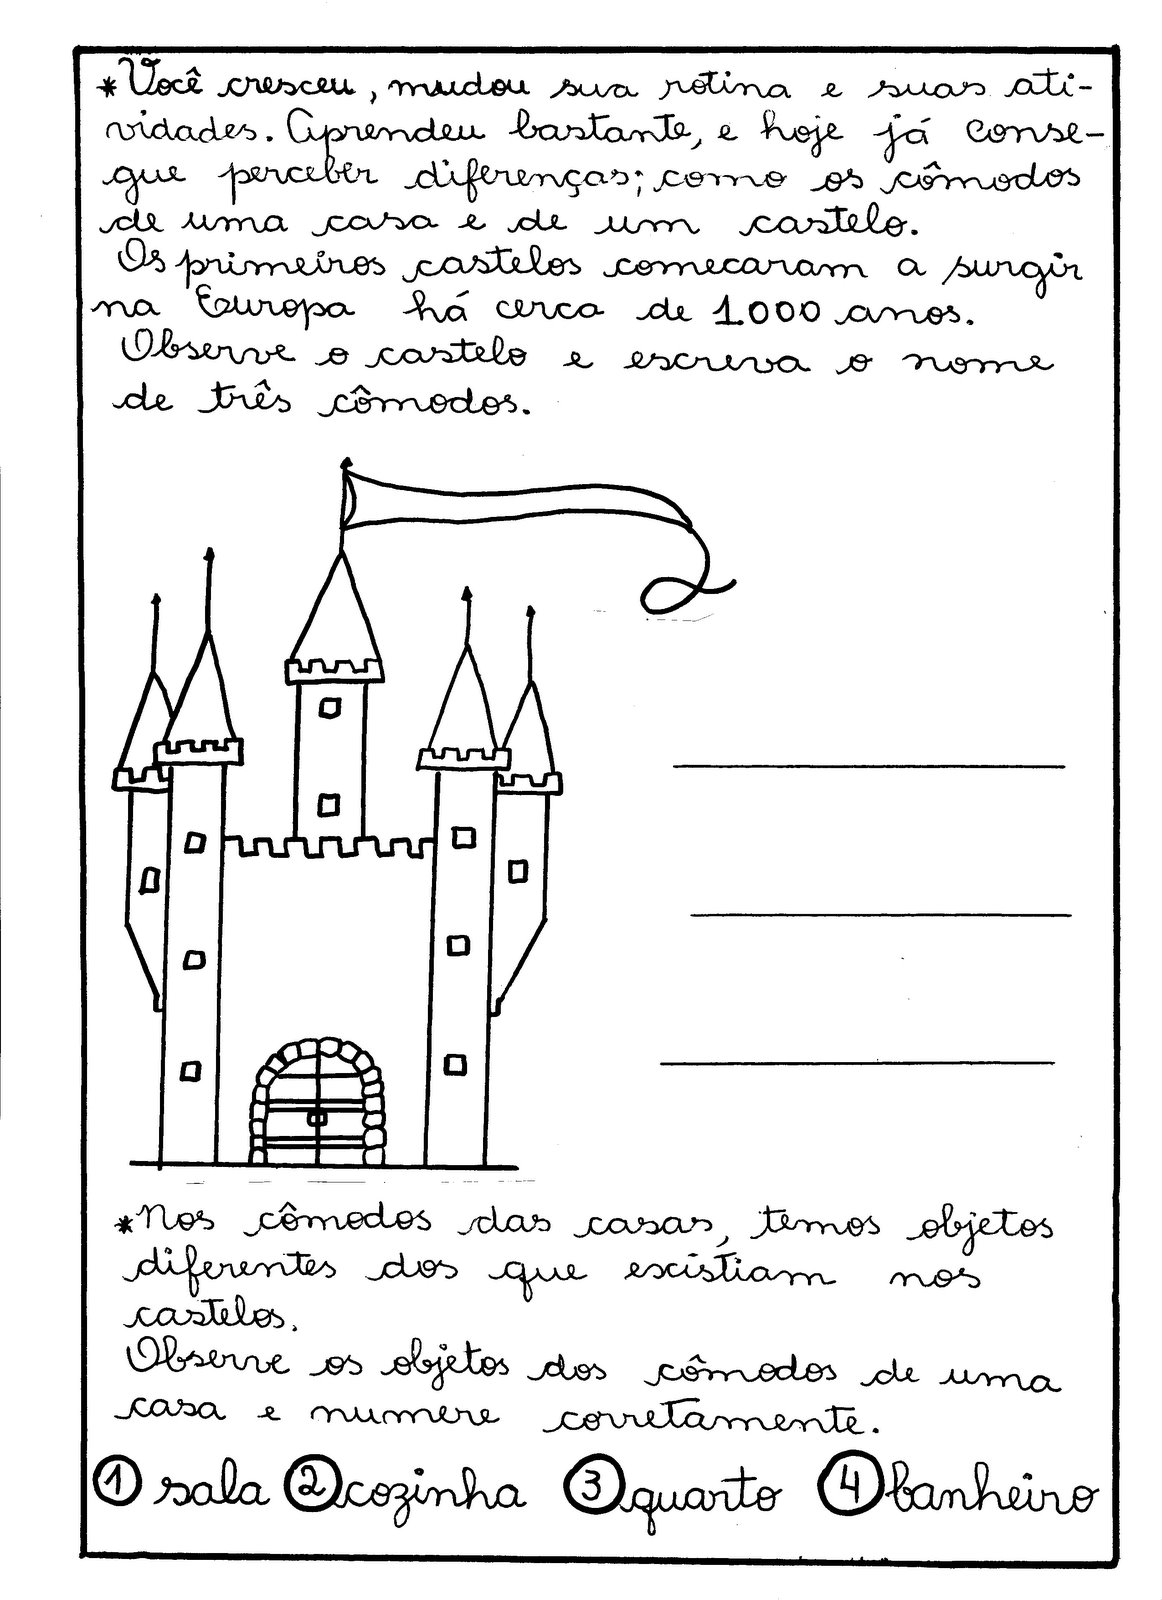 *Você cresceu, mudou sua rotina e suas ati-
vidades. Aprendeu bastante, e hoje já conse-
gue perceber diferenças; como os cômodos
de uma casa e de um castelo.
Os primeiros castelos comecaram a surgir
na Europa há cerca de 1.000 anos.
Observe o castelo e escreva o nome
de três cômodos.
*Nos cômodos das casas, temos objetos
diferentes dos que existiam nos
castelos.
Observe os objetos dos cômodos de uma
casa e numere corretamente.
1 sala 2 cozinha 3 quarto 4 banheiro